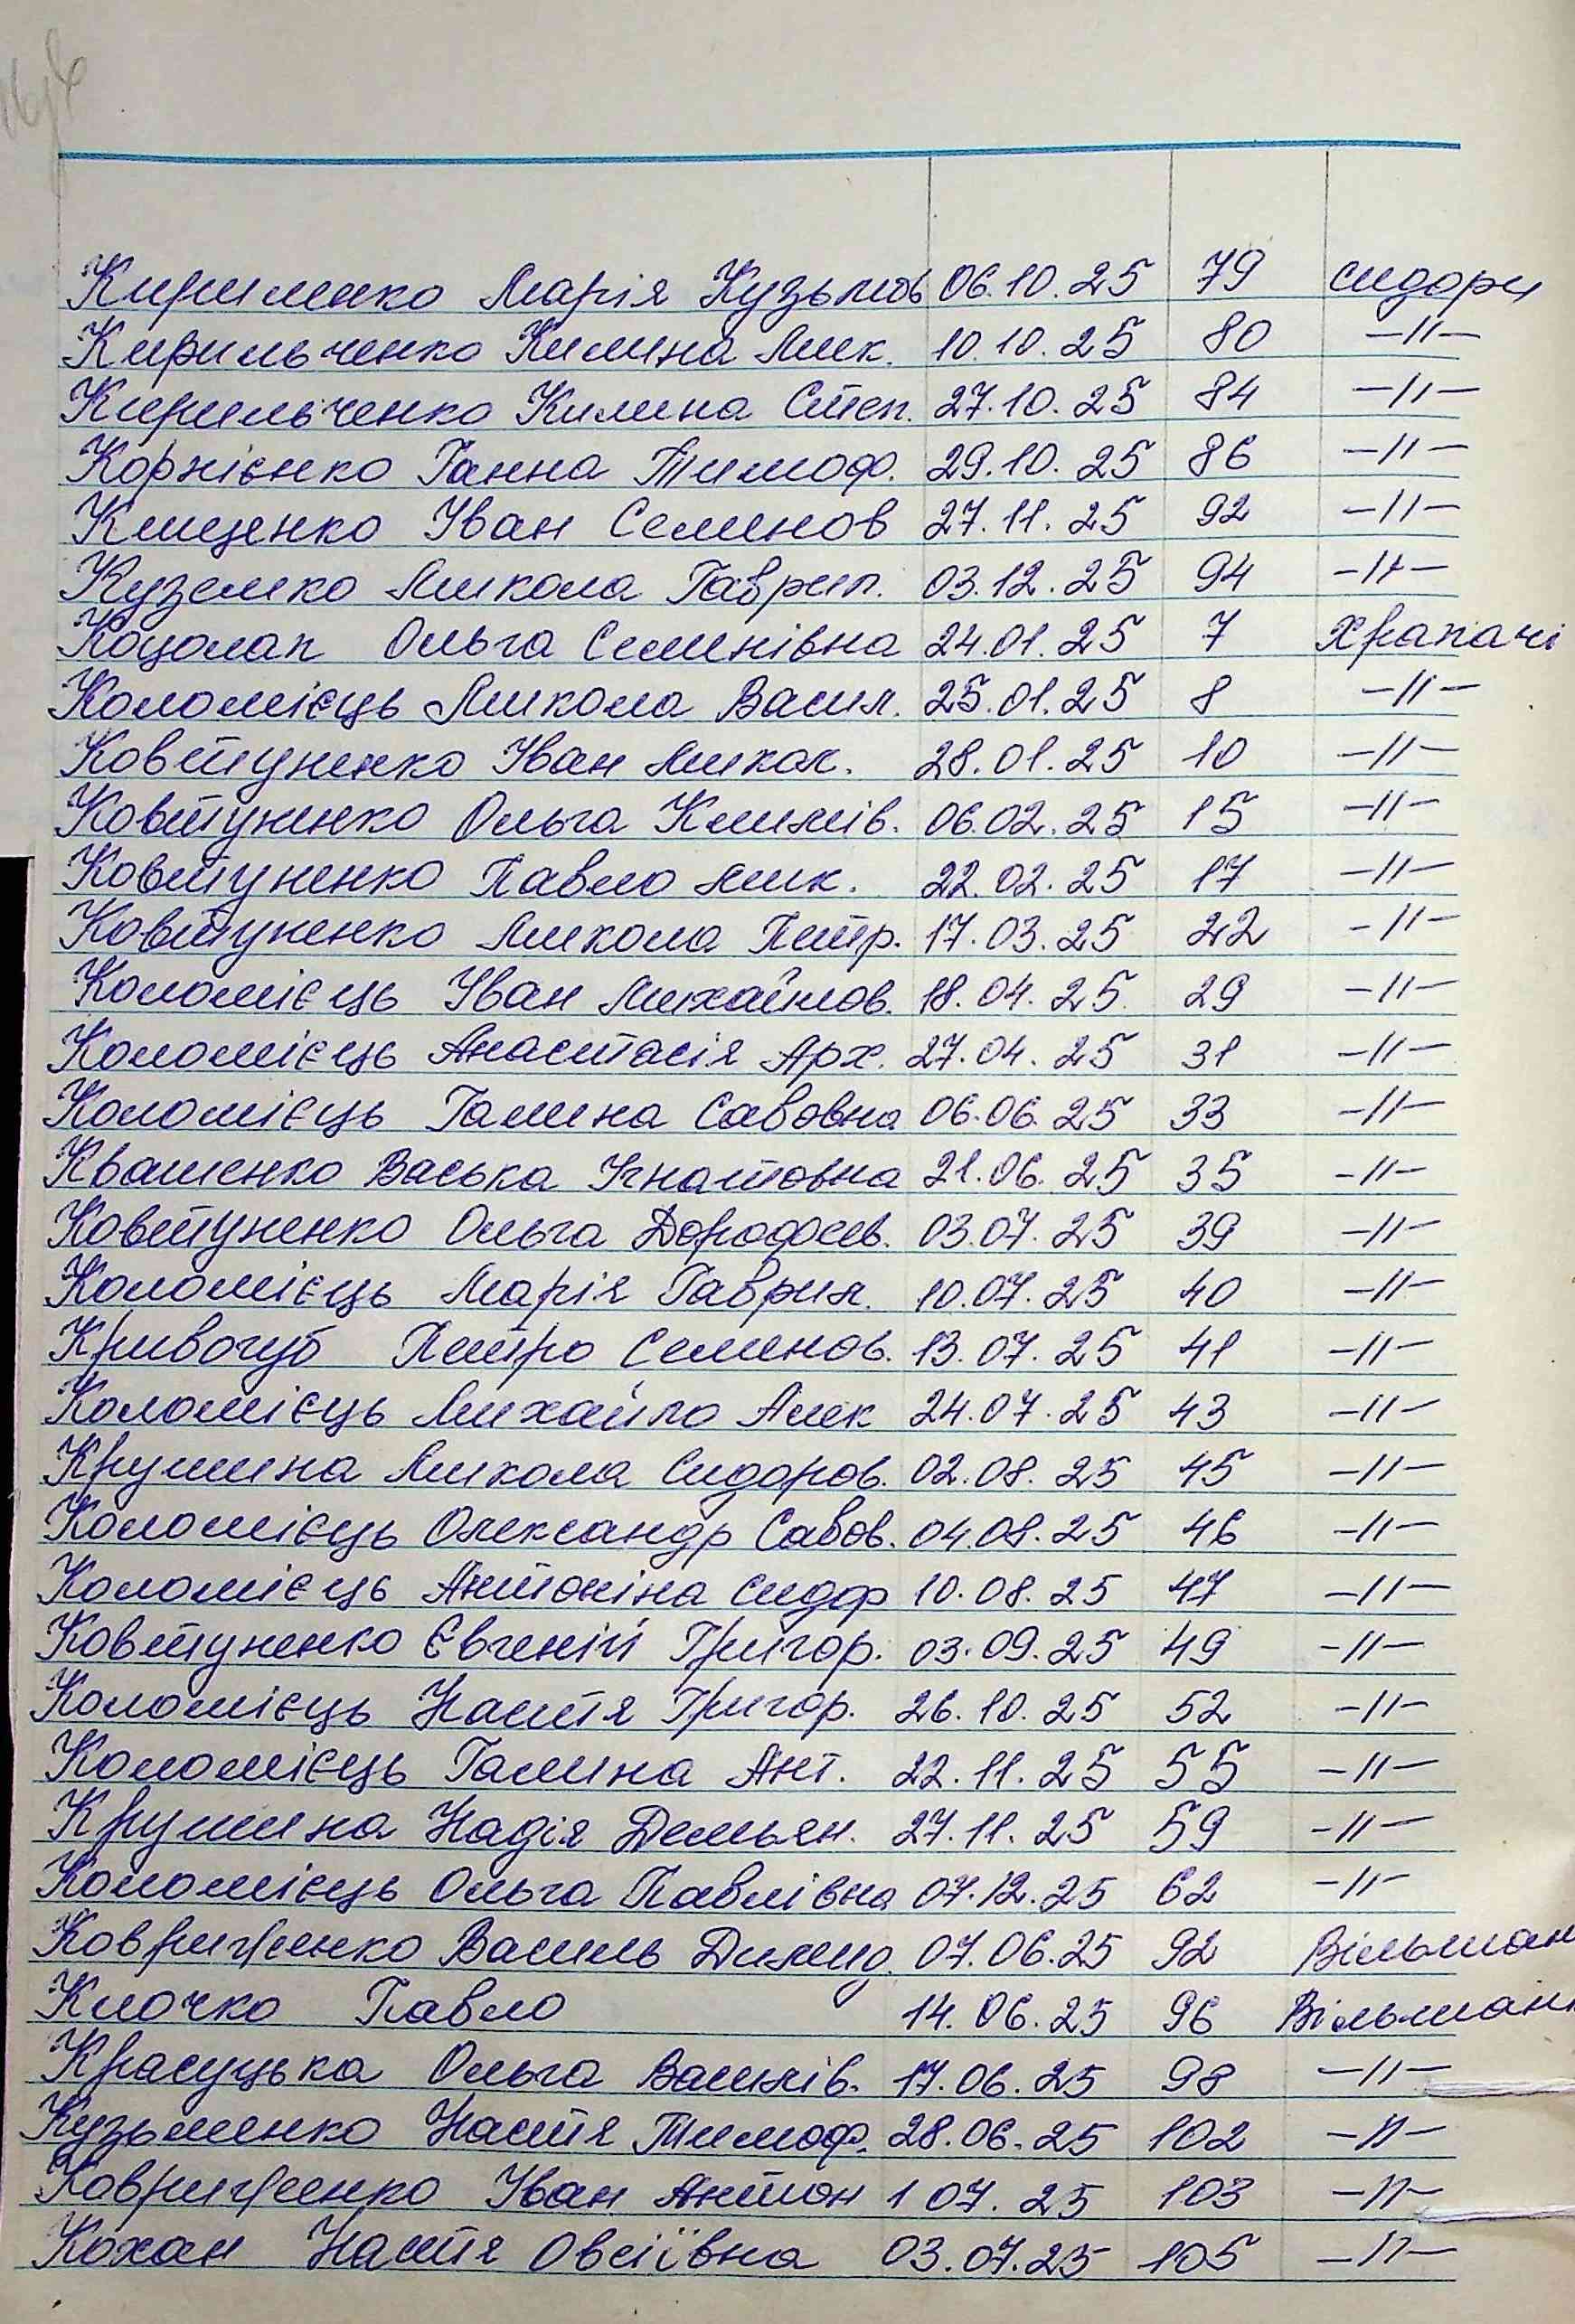 Кириленко Марія Кузьмов 06.10.25 79 сидори
Кирильченко Килина Мик. 10.10.25 80 -//-
Кирильченко Килина Степ. 27.10.25 84 -//-
Корнієнко Ганна Тимоф. 29.10.25 86 -//-
Клищенко Іван Семенов 27.11.25 92 -//-
Куземко Микола Гаврил. 03.12.25 94 -//-
Коцолап Ольга Семенівна 24.01.25 7 Храпачі
Коломієць Микола Васил. 25.01.25 8 -//-
Ковтуненко Іван Микол. 28.01.25 10 -//-
Ковтуненко Ольга Климів. 06.02.25 15 -//-
Ковтуненко Павло Мик. 22.02.25 17 -//-
Ковтуненко Микола Петр. 17.03.25 22 -//-
Коломієць Іван Михайлов. 18.04.25. 29 -//-
Коломієць Анастасія Арх. 27.04.25 31 -//-
Коломієць Галина Савовна 06.06.25 33 -//-
Квашенко Васька Ігнатовна 21.06.25 35 -//-
Ковтуненко Ольга Дорофеев. 03.07.25 39 -//-
Коломієць Марія Гаврил. 10.07.25 40 -//-
Кривогуб Петро Семенов. 13.07.25 41 -//-
Коломієць Михайло Алек 24.07.25 43 -//-
Крушина Микола Сидоров. 02.08.25 45 -//-
Коломієць Олександр Савов. 04.08.25 46 -//-
Коломієць Антоніна Сидор 10.08.25 47 -//-
Ковтуненко Євгеній Григор. 03.09.25 49 -//-
Коломієць Настя Григор. 26.10.25 52 -//-
Коломієць Галина Ант. 22.11.25 55 -//-
Крушина Надія Демьян. 27.11.25 59 -//-
Коломієць Ольга Павлівна 07.12.25 62 -//-
Василь 07.06.25 92 Вільшан
Клочко Павло 14.06.25 96 Вільшан
Красуцька Ольга Василів. 17.06.25 98 -//-
Кузьменко Настя Тимоф. 28.06.25 102 -//-
Іван Антон 1 07.25 103 -//-
Кохан Настя Овсіївна 03.07.25 105 -//-